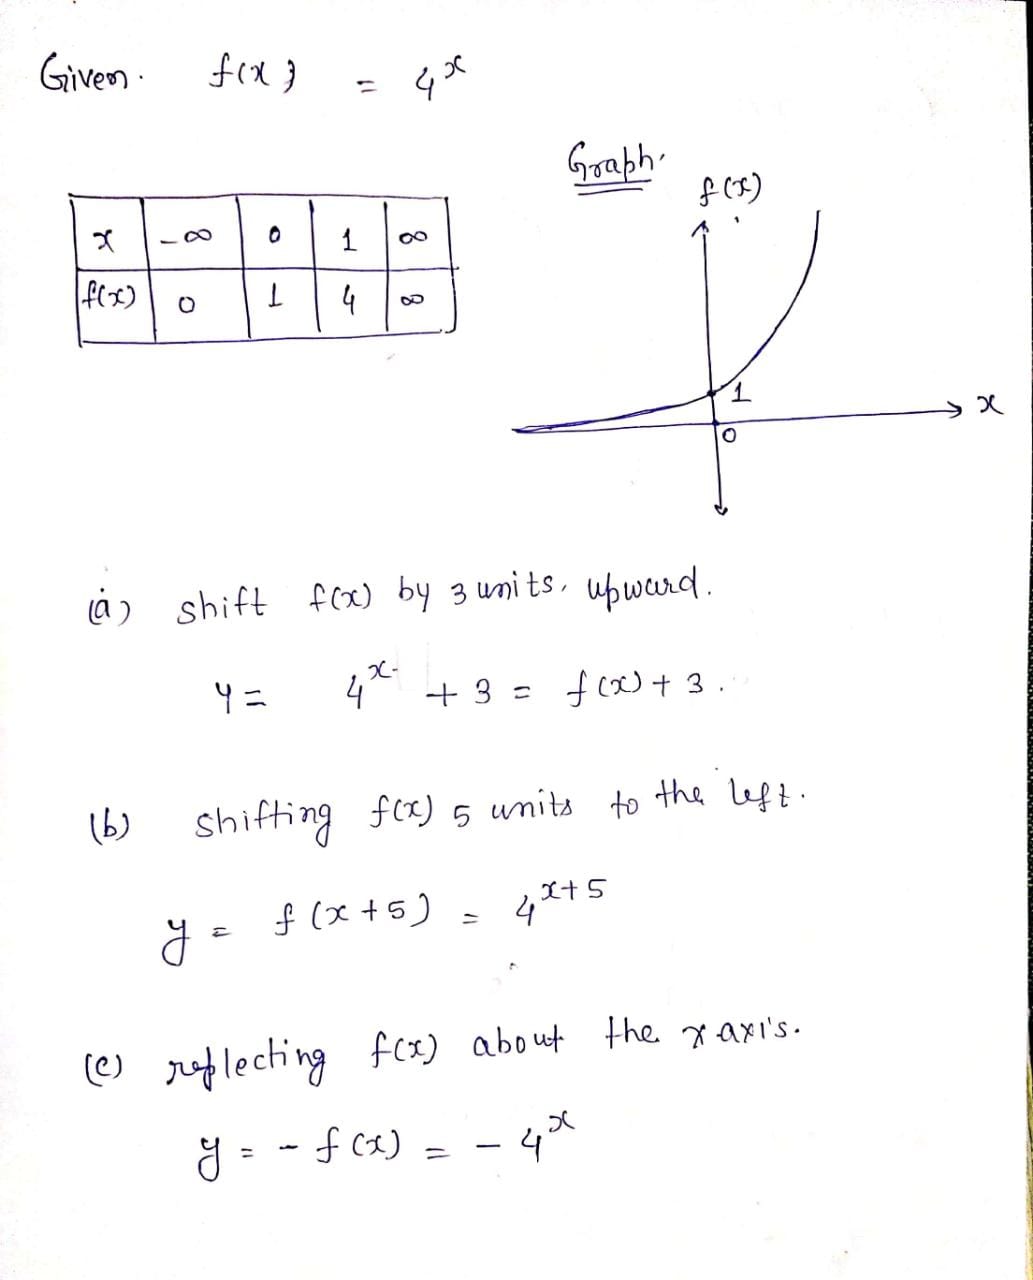 Given. f(x) = 4^x
Graph.
f(x)
x -∞ 0 1 ∞
f(x) 0 1 4 ∞
1
x
0
(a) shift f(x) by 3 units, upward.
y = 4^x + 3 = f(x) + 3.
(b) shifting f(x) 5 units to the left.
y = f(x+5) = 4^x+5
(c) reflecting f(x) about the x axis.
y = - f(x) = - 4^x